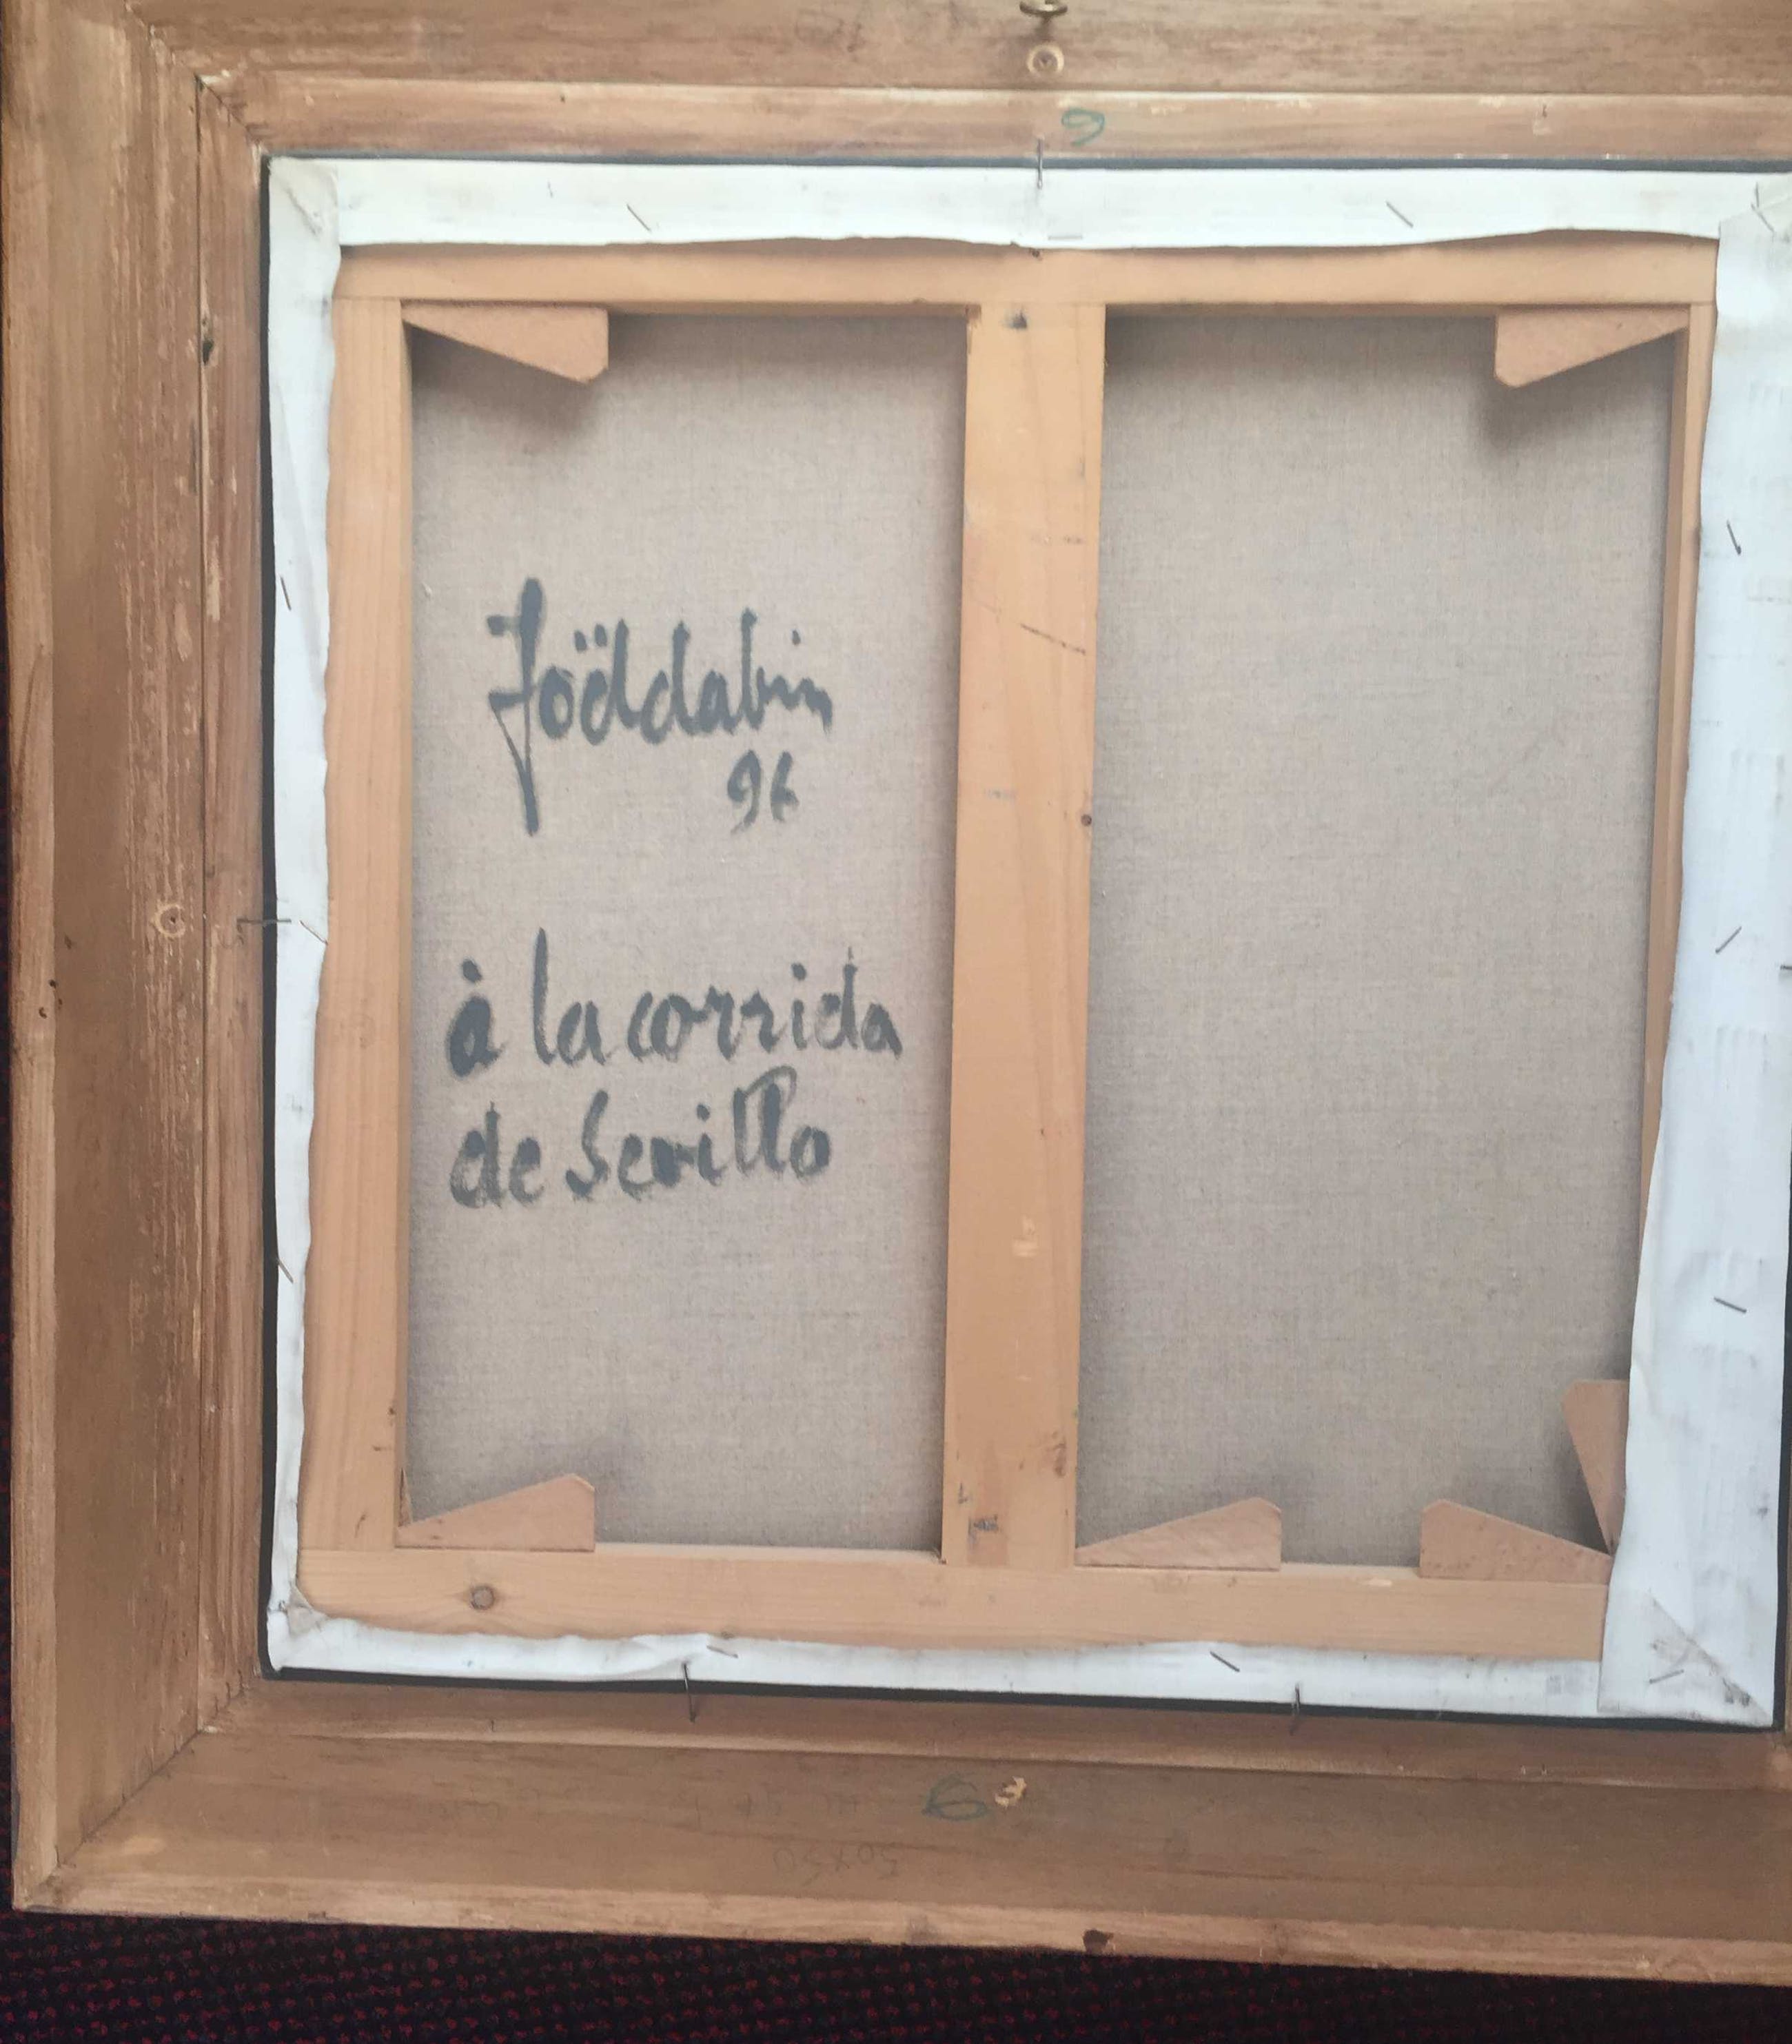 6
Joëddabin
96
à la corrida
de Sevilla
6
50x50